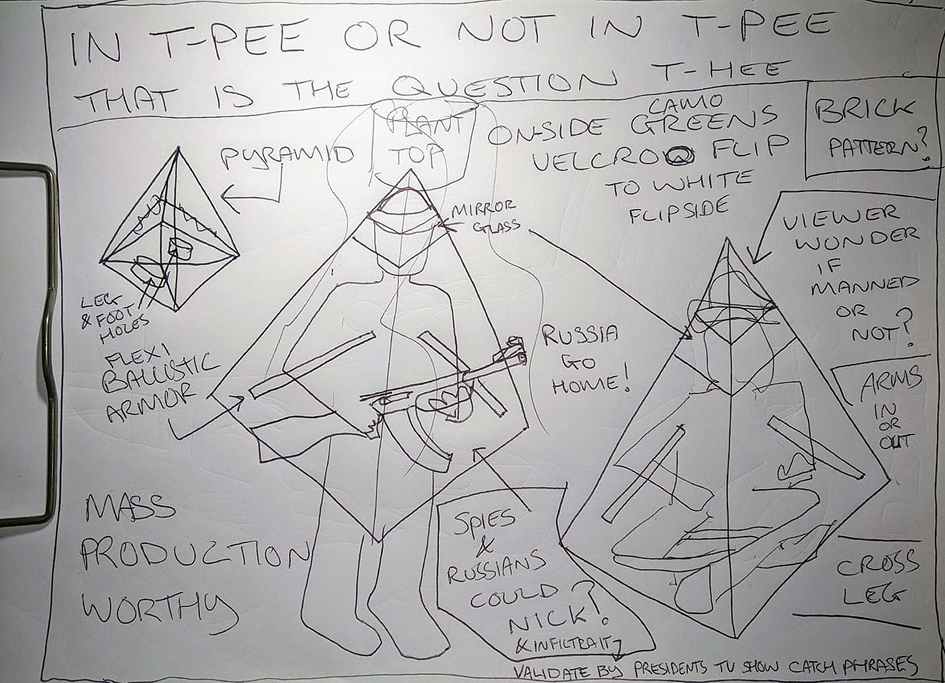 IN T-PEE OR NOT IN T-PEE
THAT IS THE QUESTION T-HEE
PLANT
TOP
ONSIDE CAMO GREENS
VELCRO FLIP
TO WHITE
FLIPSIDE
BRICK
PATTERN?
PYRAMID
MIRROR
GLASS
VIEWER
WONDER
IF
MANNED
OR
NOT?
LEG
& FOOT
HOLES
FLEXI
BALLISTIC
ARMOR
RUSSIA
GO
HOME!
ARMS
IN
OR
OUT
MASS
PRODUCTION
WORTHY
SPIES
&
RUSSIANS
COULD
NICK?
& INFILTRAIT
CROSS
LEG
VALIDATE BY PRESIDENTS TV SHOW CATCH PHRASES